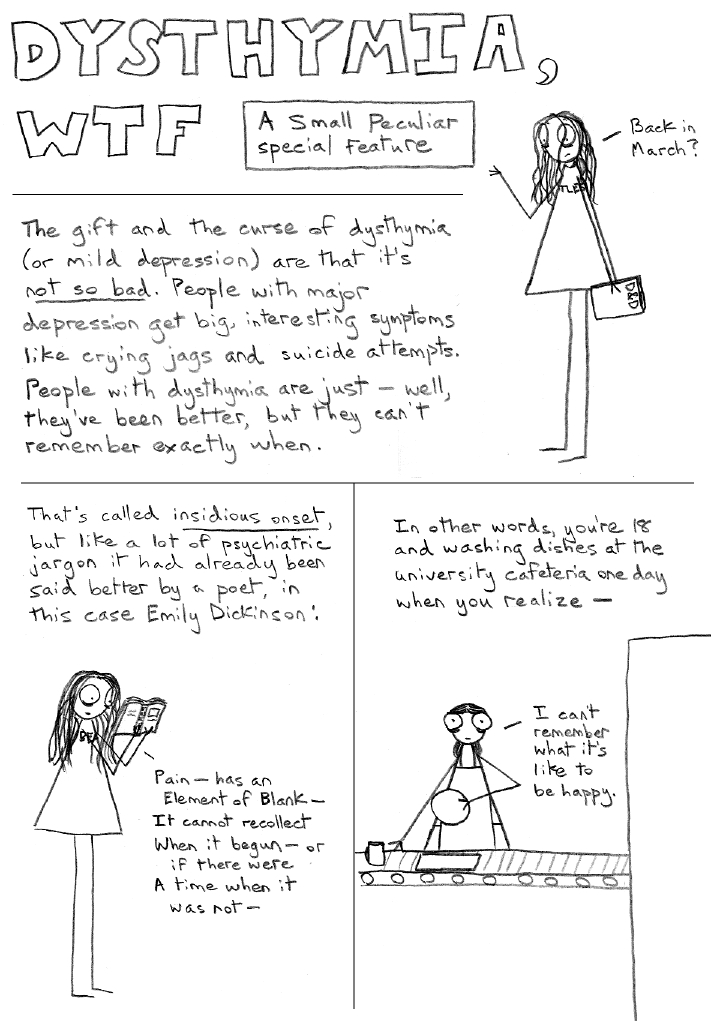 DYSTHYMIA,
WTF
A Small Peculiar
special feature
Back in
March?
The gift and the curse of dysthymia
(or mild depression) are that it's
not so bad. People with major
depression get big, interesting symptoms
like crying jags and suicide attempts.
People with dysthymia are just — well,
they've been better, but they can't
remember exactly when.
TLES
D&D
That's called insidious onset,
but like a lot of psychiatric
jargon it had already been
said better by a poet, in
this case Emily Dickinson:
BE
Pain — has an
Element of Blank —
It cannot recollect
When it begun — or
if there were
A time when it
was not —
In other words, you're 18
and washing dishes at the
university cafeteria one day
when you realize —
I can't
remember
what it's
like to
be happy.